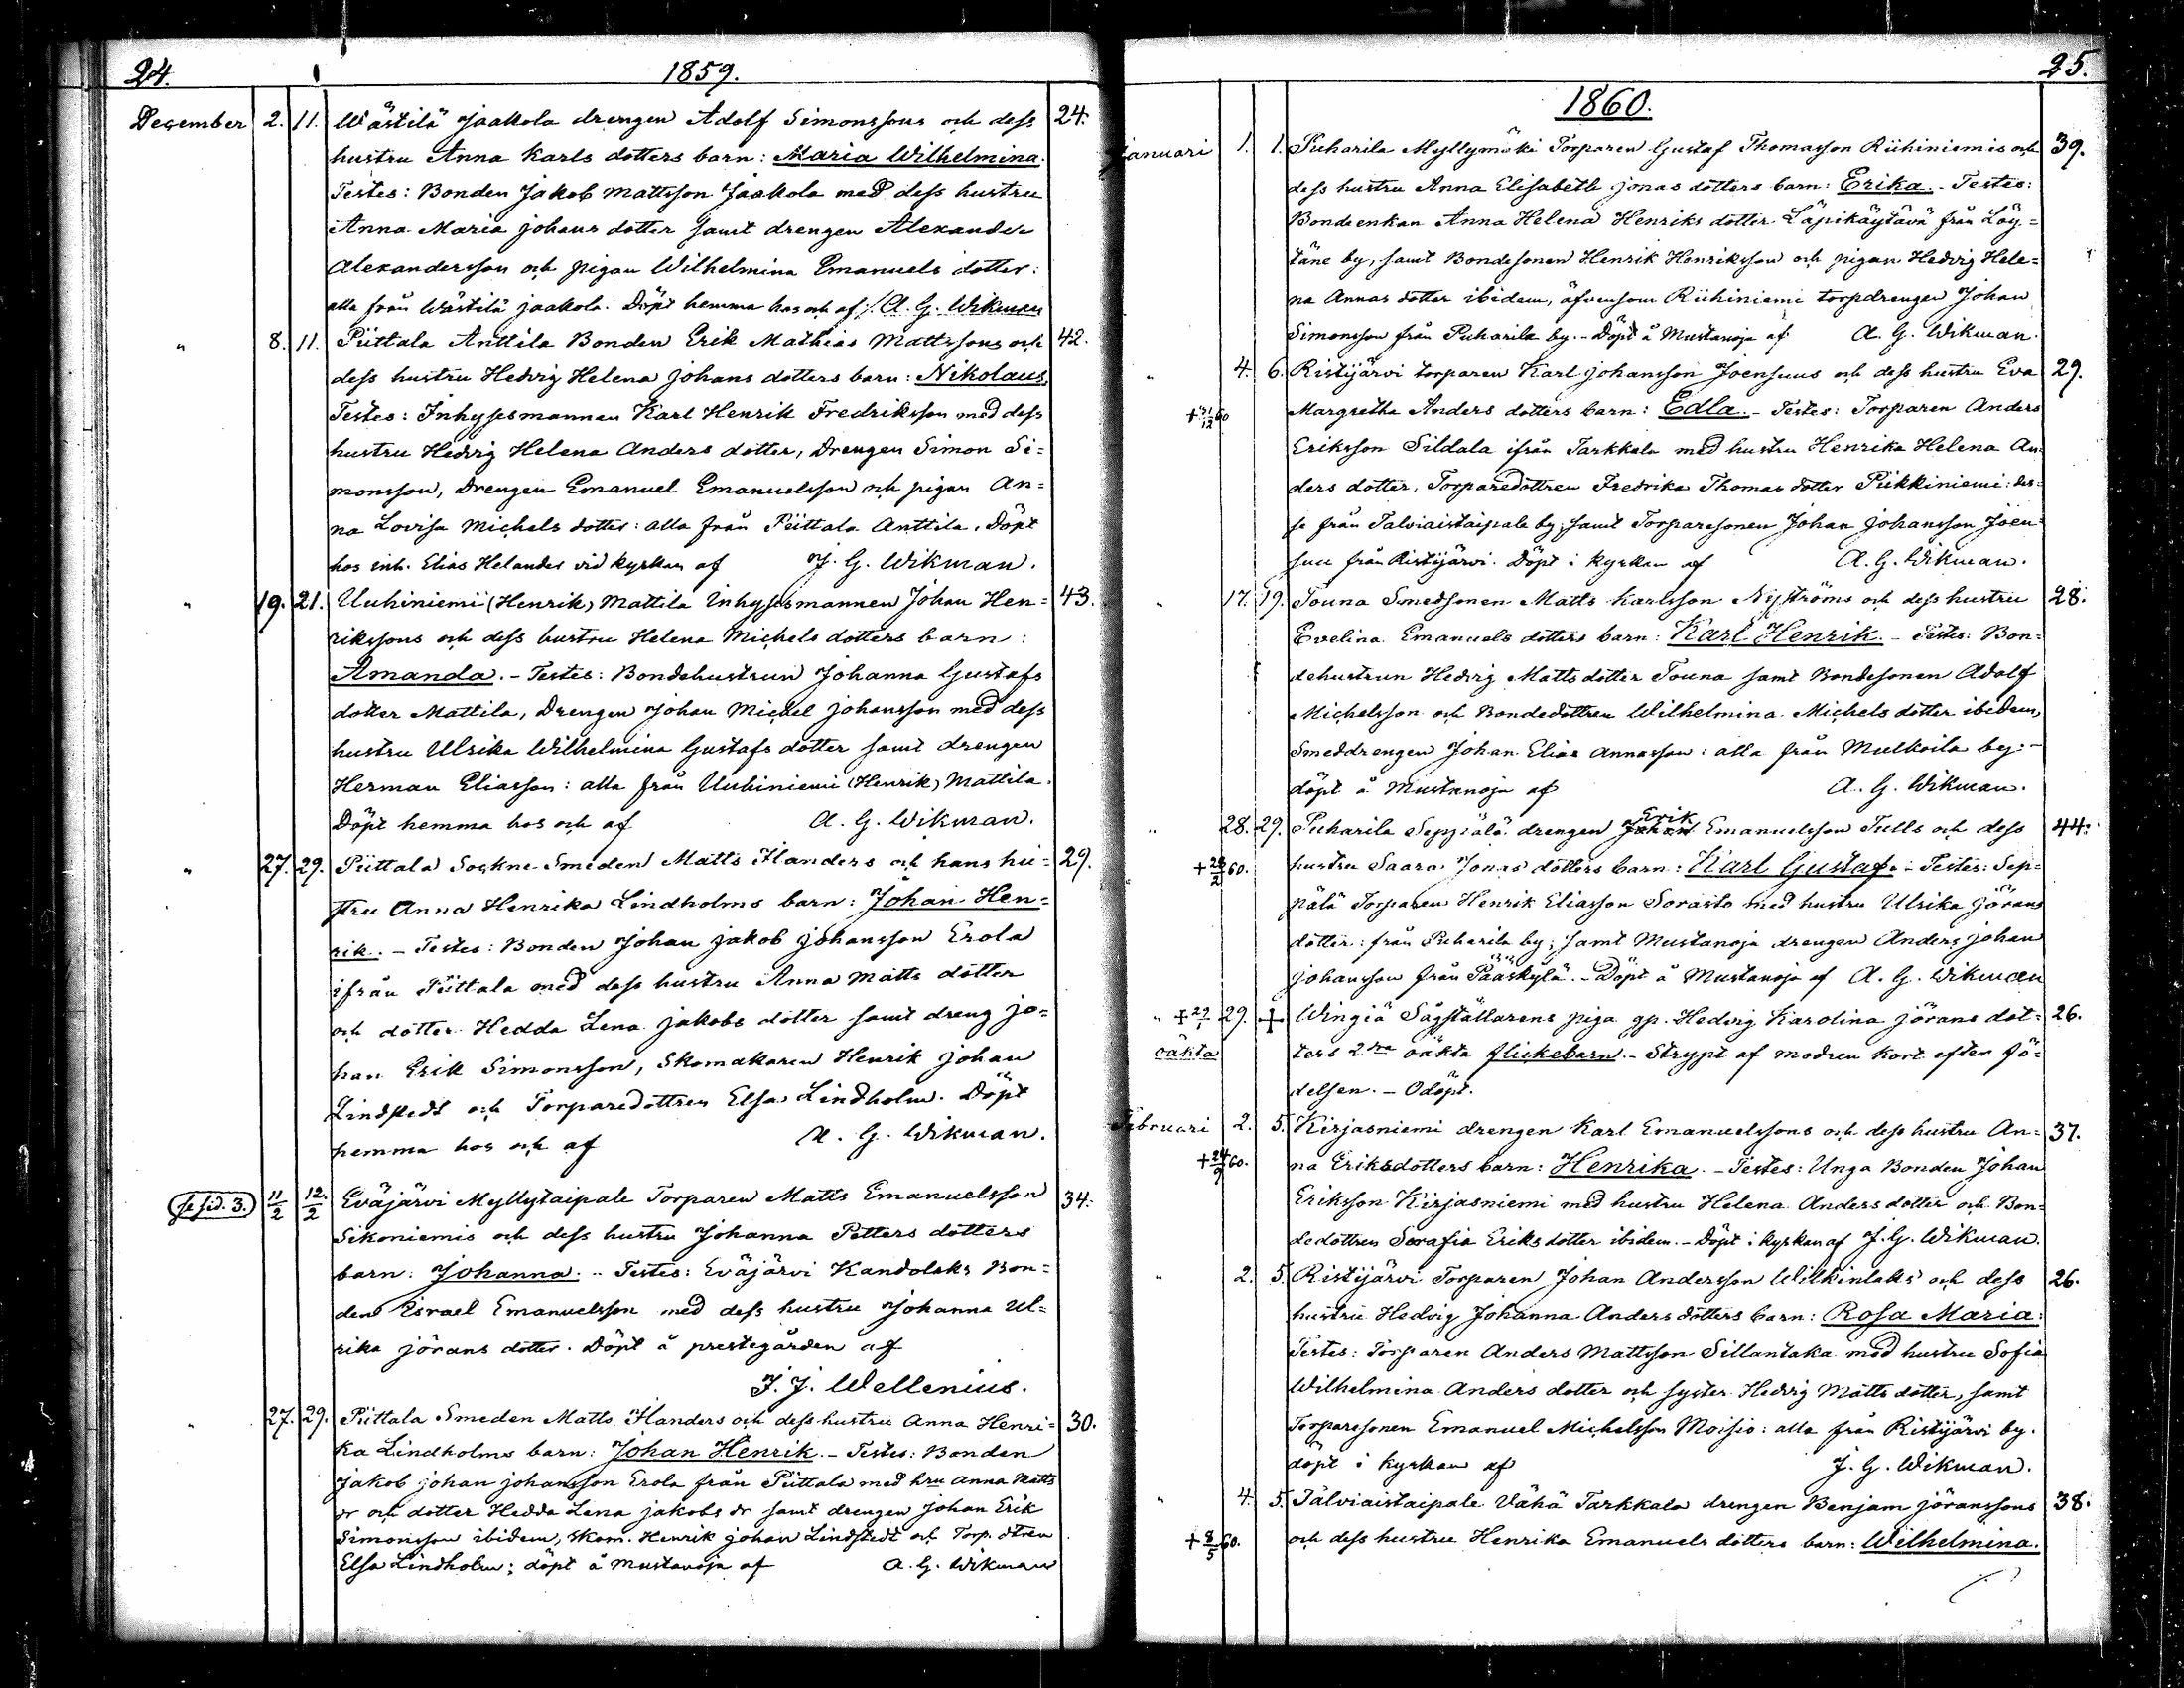 24. 1859.
December 2. 11. Wästilä Jaakola drengen Adolf Simonssons och dess 24.
hustru Anna Karls dotters barn: Maria Wilhelmina.
Testes: Bonden Jakob Mattsson Jaakola med dess hustru
Anna Maria Johans dotter samt drengen Alexander
Alexandersson och pigan Wilhelmina Emanuels dotter:
alla från Wästilä Jaakola. Döpt hemma hos och af /. A. G. Wikman
" 8. 11. Piittala Anttila Bonden Erik Mathias Mattssons och 42.
dess hustru Hedvig Helena Johans dotters barn: Nikolaus.
Testes: Inhysesmannen Karl Henrik Fredriksson med dess
hustru Hedvig Helena Anders dotter, Drengen Simon Si=
monsson, Drengen Emanuel Emanuelsson och pigan An=
na Lovisa Michels dotter: alla från Piittala Anttila. Döpt
hos inh. Elias Helander vid kyrkan af J. G. Wikman.
" 19. 21. Uuhiniemi (Henrik) Mattila Inhysesmannen Johan Hen= 43.
rikssons och dess hustru Helena Michels dotters barn:
Amanda. - Testes: Bondehustrun Johanna Gustafs
dotter Mattila, Drengen Johan Michel Johansson med dess
hustru Ulrika Wilhelmina Gustafs dotter samt drengen
Herman Eliasson: alla från Uuhiniemi (Henrik) Mattila.
Döpt hemma hos och af A. G. Wikman.
" 27. 29. Piittala Sockne-Smeden Matts Flanders och hans hu= 29.
stru Anna Henrika Lindholms barn: Johan Hen=
rik. - Testes: Bonden Johan Jakob Johansson Erola
ifrån Piittala med dess hustru Anna Matts dotter
och dotter Hedda Lena Jakobs dotter samt dreng Jo=
han Erik Simonsson, Skomakaren Henrik Johan
Lindstedt och Torparedottren Elsa Lindholm. Döpt
hemma hos och af A. G. Wikman.
se sid. 3. 11/2 12./2 Eväjärvi Myllytaipale Torparen Matts Emanuelsson 34.
Sikoniemis och dess hustru Johanna Petters dotters
barn: Johanna. - Testes: Eväjärvi Kandolaks Bon=
den Israel Emanuelsson med dess hustru Johanna Ul=
rika Jörans dotter. Döpt å prestegården af
J. J. Wellenius.
" 27. 29. Piittala Smeden Matts Flanders och dess hustru Anna Henri= 30.
ka Lindholms barn: Johan Henrik. - Testes: Bonden
Jakob Johan Johansson Erola från Piittala med hru Anna Matts
dr och dotter Hedda Lena Jakobs dr samt drengen Johan Erik
Simonsson ibidem, Skom. Henrik Johan Lindstedt och Torp. dtren
Elsa Lindholm; döpt å Mustanoja af A. G. Wikman
25.
1860.
Januari 1. 1. Puharila Myllymäki Torparen Gustaf Thomasson Riihiniemis och 39.
dess hustru Anna Elisabeth Jonas dotters barn: Erika. - Testes:
Bondeenkan Anna Helena Henriks dotter Läpikäytävä från Löy=
täne by, samt Bondesonen Henrik Henriksson och pigan Hedvig Hele=
na Annas dotter ibidem, äfvensom Riihiniemi torpdrengen Johan
Simonsson från Puharila by. - Döpt å Mustanoja af A. G. Wikman.
" 4. 6. Ristijärvi torparen Karl Johansson Joensuus och dess hustru Eva 29.
+ 31/12 60 Margretha Anders dotters barn: Edla. - Testes: Torparen Anders
Eriksson Sildala ifrån Tarkkala med hustru Henrika Helena An=
ders dotter, Torparedottren Fredrika Thomas dotter Piikkiniemi: des=
se från Talviaistaipale by; samt Torparesonen Johan Johansson Joen=
suu från Ristijärvi. Döpt i Kyrkan af A. G. Wikman.
" 17. 19. Touna Smedsonen Matts Karlsson Nyströms och dess hustru 28.
Evelina Emanuels dotters barn: Karl Henrik. - Testes: Bon=
dehustrun Hedvig Matts dotter Touna samt Bondesonen Adolf
Michelsson och Bondedottren Wilhelmina Michels dotter ibidem,
Smeddrengen Johan Elias Annasson: alla från Mulkoila by: -
döpt å Mustanoja af A. G. Wikman.
" 28. 29. Puharila Seppälä drengen Johan Erik Emanuelsson Tulls och dess 44.
+ 28/2 60. hustru Saara Jonas dotters barn: Karl Gustaf. - Testes: Sep=
pälä Torparen Henrik Eliasson Sorasto med hustru Ulrika Jörans
dotter: från Puharila by; samt Mustanoja drengen Anders Johan
Johansson från Pääskylä. - Döpt å Mustanoja af A. G. Wikman
" + 29/1 29. + Wingiä Sågställarens piga gp. Hedvig Karolina Jörans dot= 26.
oäkta ters 2dra oäkta flickebarn. - Strypt af modren kort efter fö=
delsen. - Odöpt.
Februari 2. 5. Kirjasniemi drengen Karl Emanuelssons och dess hustru An= 37.
+ 24/9 60. na Eriksdotters barn: Henrika. - Testes: Unga Bonden Johan
Eriksson Kirjasniemi med hustru Helena Anders dotter och Bon=
dedottren Serafia Eriks dotter ibidem. - Döpt i kyrkan af J. G. Wikman.
" 2. 5. Ristijärvi Torparen Johan Andersson Wilkinlaks och dess 26.
hustru Hedvig Johanna Anders dotters barn: Rosa Maria:
Testes: Torparen Anders Mattsson Sillantaka med hustru Sofia
Wilhelmina Anders dotter och syster Hedvig Matts dotter, samt
Torparesonen Emanuel Michelsson Moisio: alla från Ristijärvi by.
döpt i kyrkan af J. G. Wikman.
" 4. 5. Talviaistaipale Vähä Tarkkala drengen Benjam Jöranssons 38.
+ 8/5 60. och dess hustru Henrika Emanuels dotters barn: Wilhelmina.